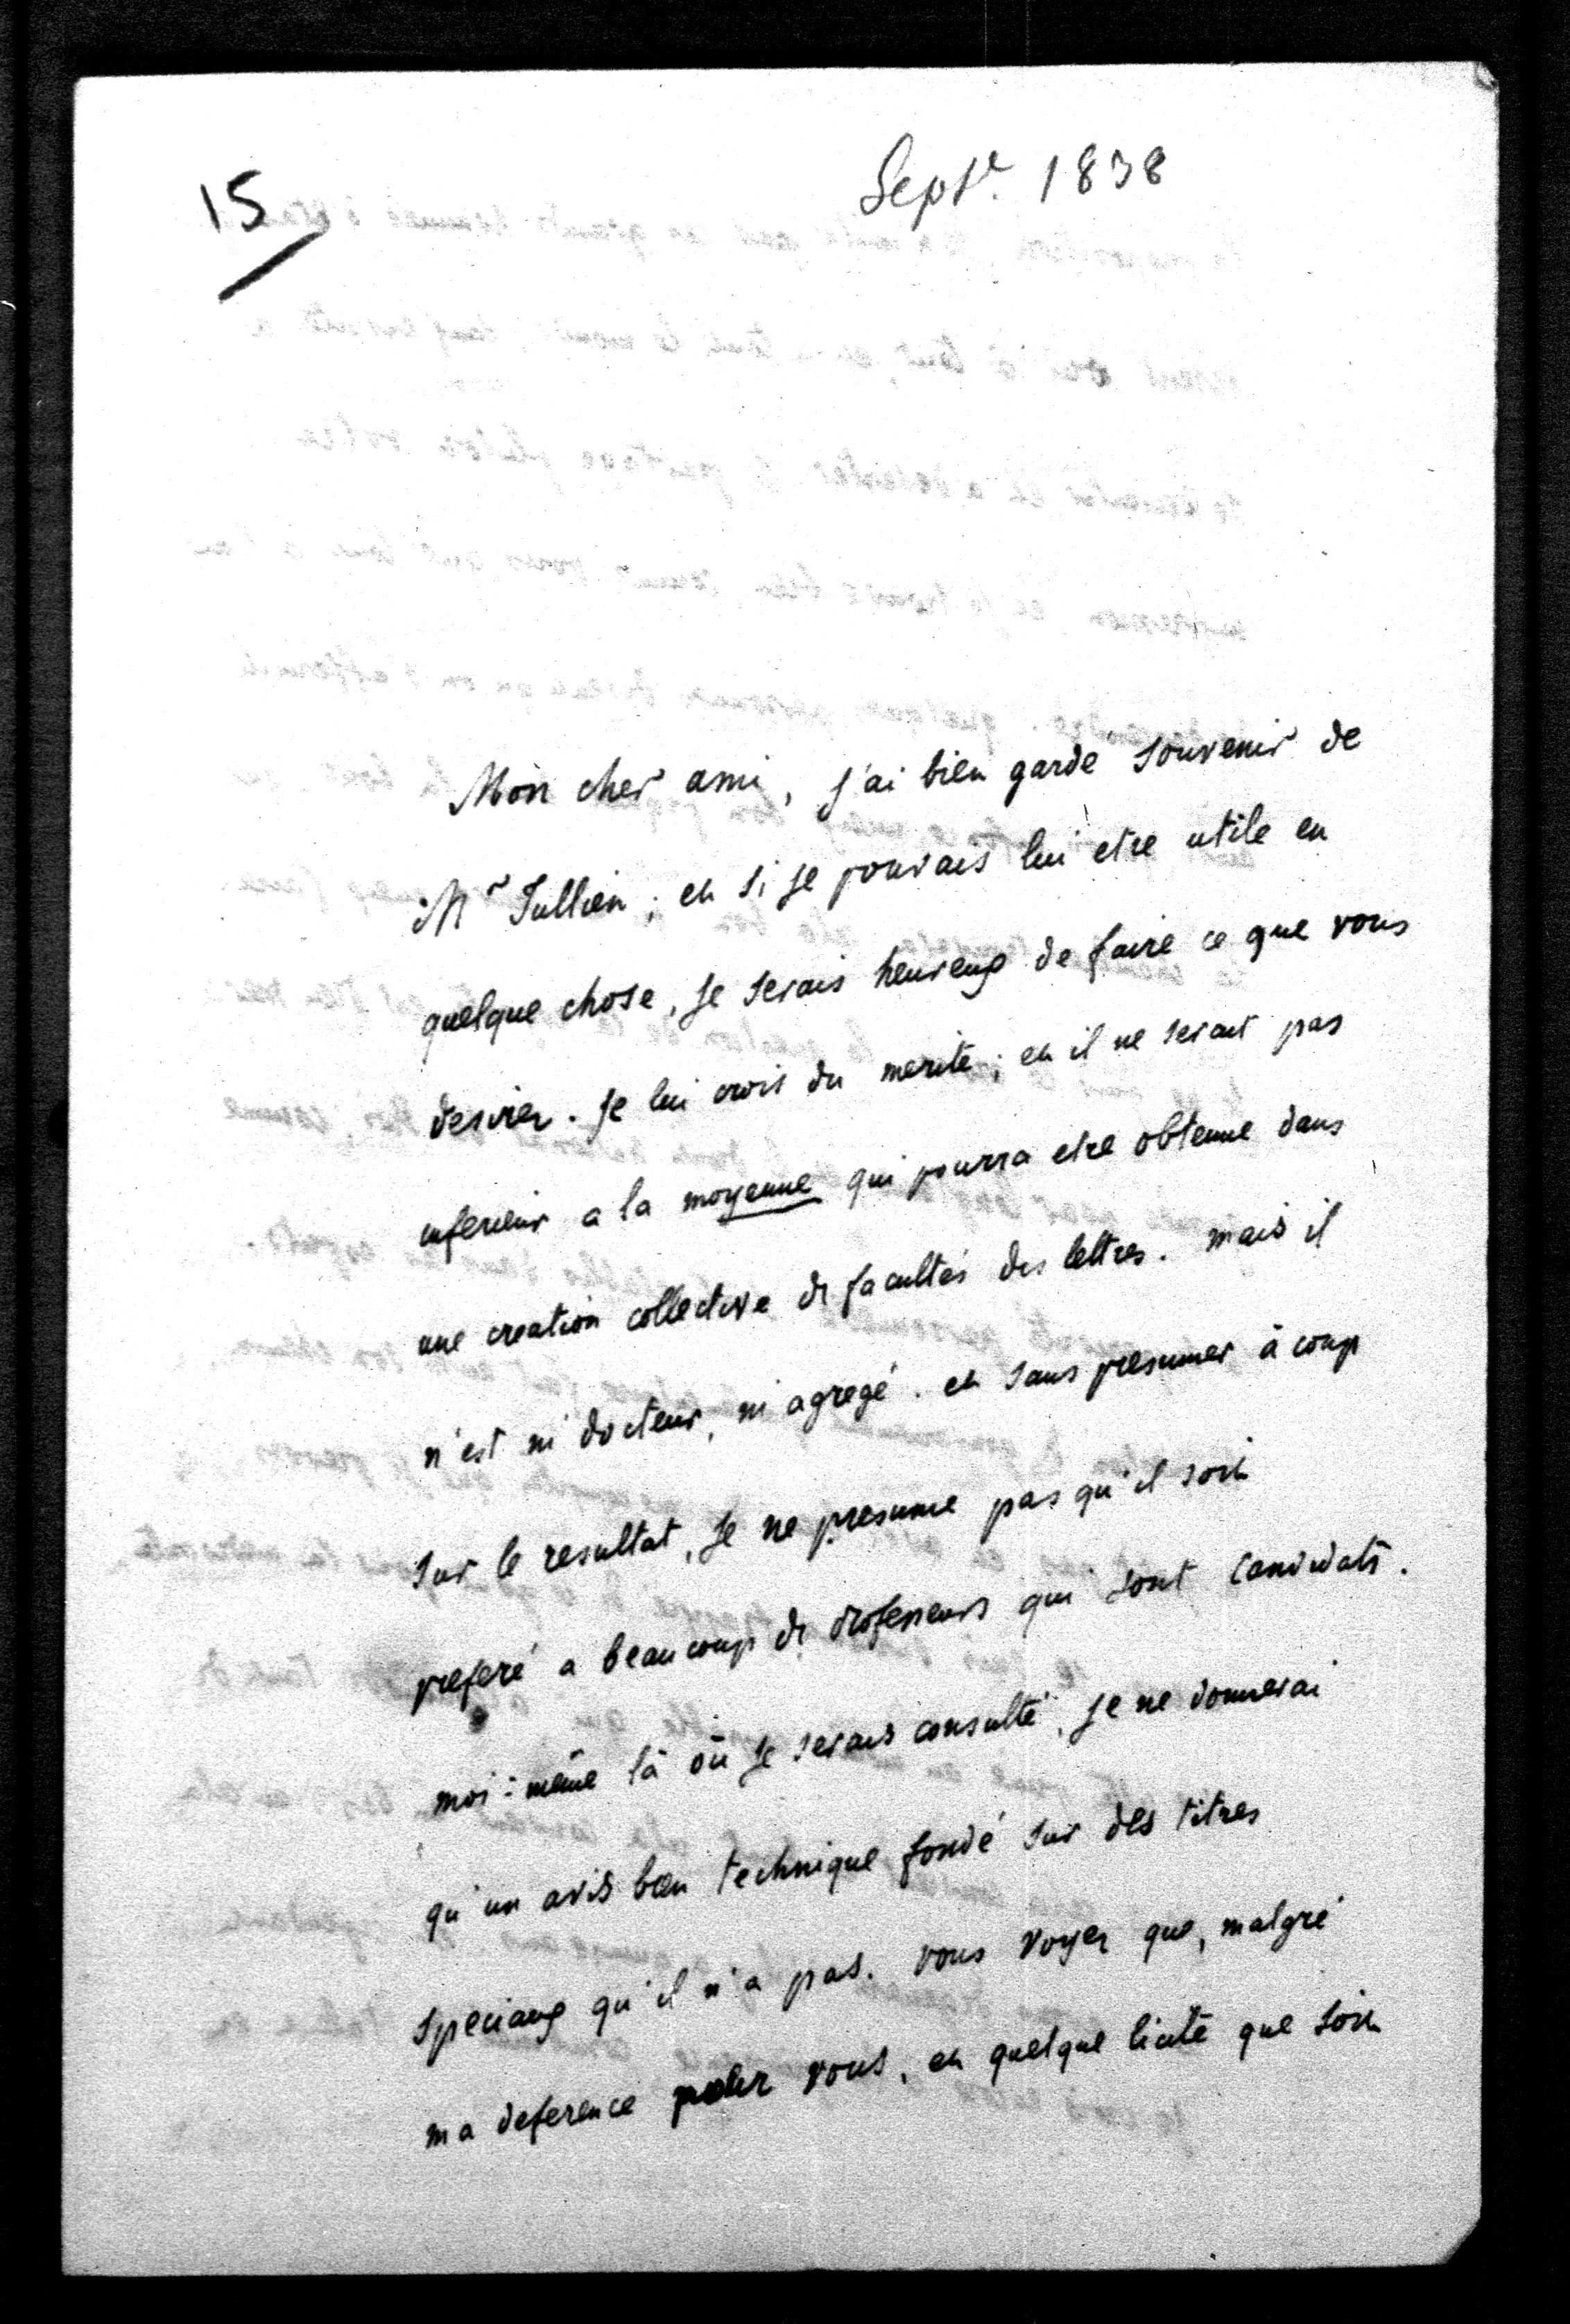 15
Sept.e 1838
Mon cher ami, j'ai bien gardé souvenir de
Mr Jullien ; et si je pouvais lui etre utile en
quelque chose, je serais heureux de faire ce que vous
desirez. je lui crois du merite ; et il ne serait pas
inferieur a la moyenne qui pourra etre obtenue dans
une creation collective de facultés des lettres. mais il
n'est ni docteur, ni agregé. et sans presumer à coup
sur le resultat, je ne presume pas qu'il soit
preferé a beaucoup de professeurs qui sont candidats.
moi-même là où je serais consulté, je ne donnerai
qu'un avis bien technique fondé sur des titres
speciaux qu'il n'a pas. vous voyez que, malgré
ma deference pour vous, et quelque que soit